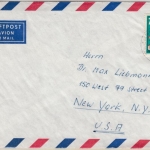 LUFTPOST
PAR AVION
AIR MAIL
Herrn
Dr. Max Liebmann
150 West 99 Street
New York, N.Y.
U.S.A